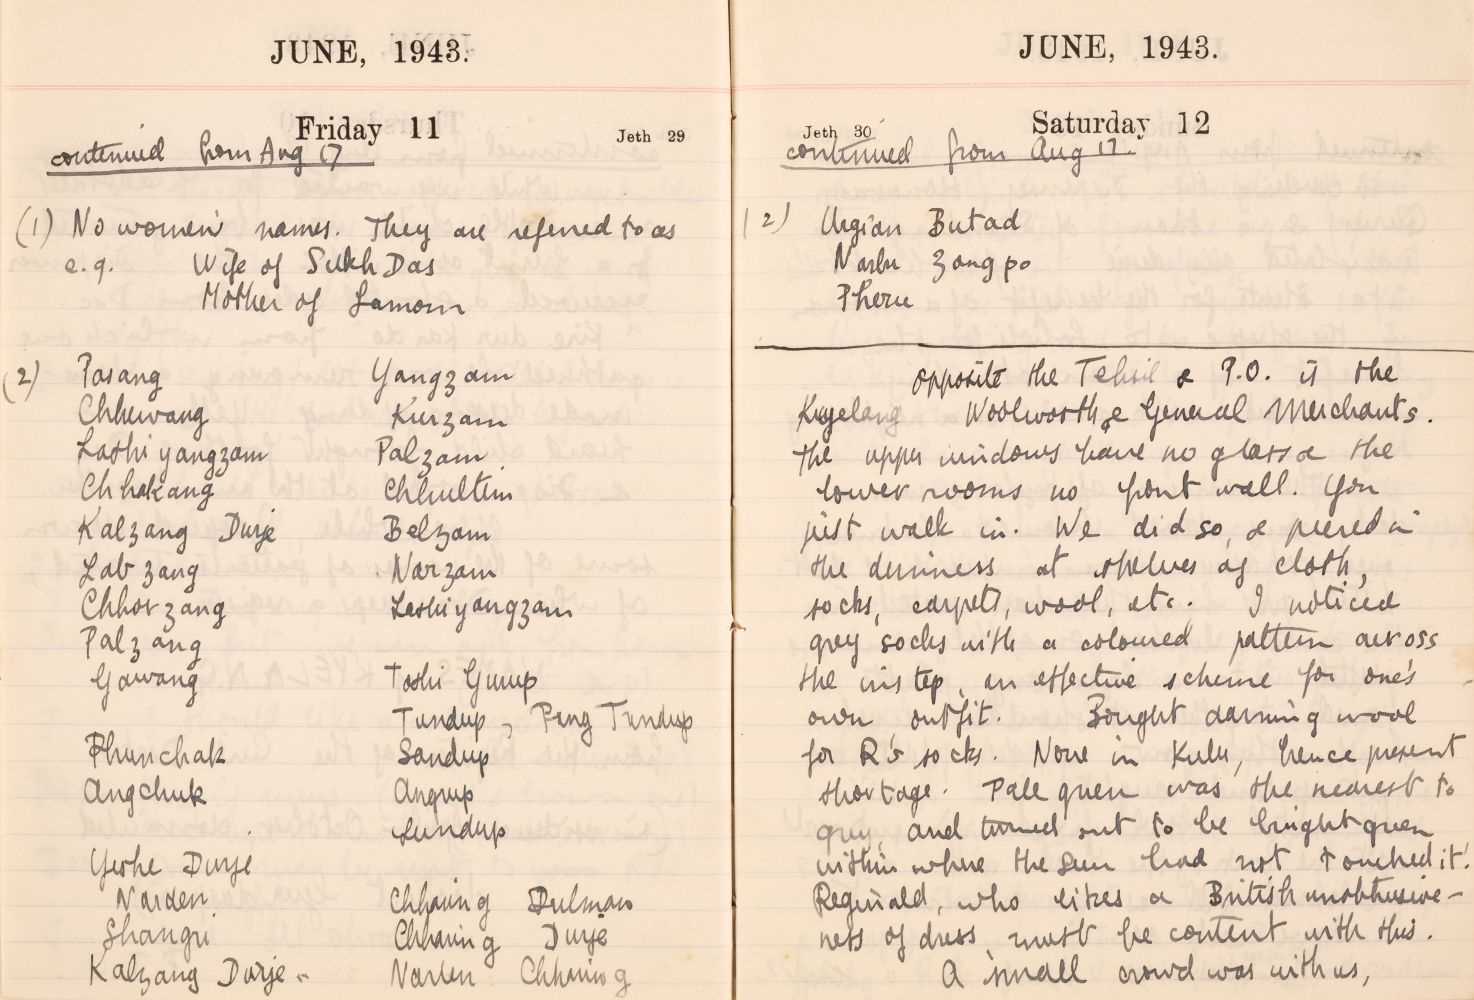 JUNE, 1943.
Friday 11
Jeth 29
continued from Aug 17
(1) No women's names. They are referred to as
e.g. Wife of Sukh Das
Mother of Lamom
(2) Pasang Yangzam
Chhewang Kurzam
Lashi yangzam Palzam
Chhokang Chhultim
Kalzang Durje Belzam
Lab zang Narzam
Chhorzang Lashiyangzam
Palzang
Gawang Toshi Gurup
Tundup, Peng Tundup
Phunchak Sandup
Angchuk Angrup
Lundup
Yeshe Durje
Narden Chhering Dulmao
Shangri Chhering Durje
Kalzang Durje Narbu Chhering
JUNE, 1943.
Jeth 30
Saturday 12
continued from Aug 17
(2) Urgian Butad
Narbu Zangpo
Pheru
Opposite the Tehsil & P.O. is the
Kyelang Woolworth & General Merchants.
The upper windows have no glass & the
lower rooms no front wall. You
just walk in. We did so, & peered in
the dimness at shelves of cloth,
socks, carpets, wool, etc. I noticed
grey socks with a coloured pattern across
the instep, an effective scheme for one's
own outfit. Bought darning wool
for R's socks. None in Kulu, hence present
shortage. Pale green was the nearest to
grey, and turned out to be bright green
within where the sun had not touched it!
Reginald, who likes a British unobtrusive-
ness of dress, must be content with this.
A small crowd was with us,